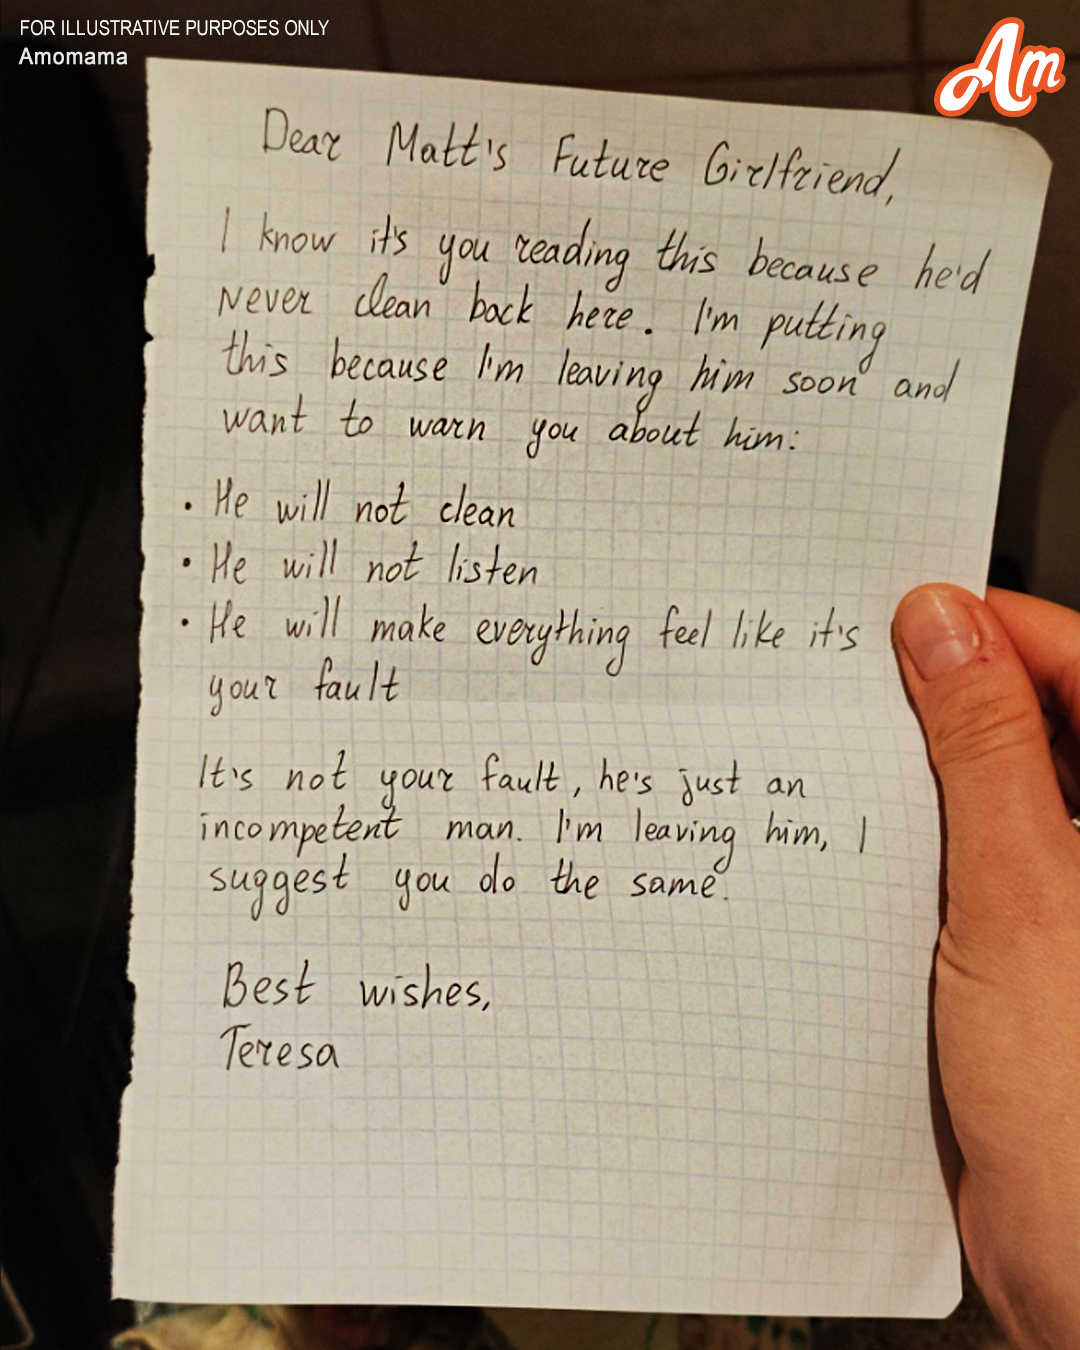 FOR ILLUSTRATIVE PURPOSES ONLY
Amomama
Am
Dear Matt's Future Girlfriend,
I know it's you reading this because he'd
never clean back here. I'm putting
this because I'm leaving him soon and
want to warn you about him:
• He will not clean
• He will not listen
• He will make everything feel like it's
your fault
It's not your fault, he's just an
incompetent man. I'm leaving him, I
suggest you do the same.
Best wishes,
Teresa